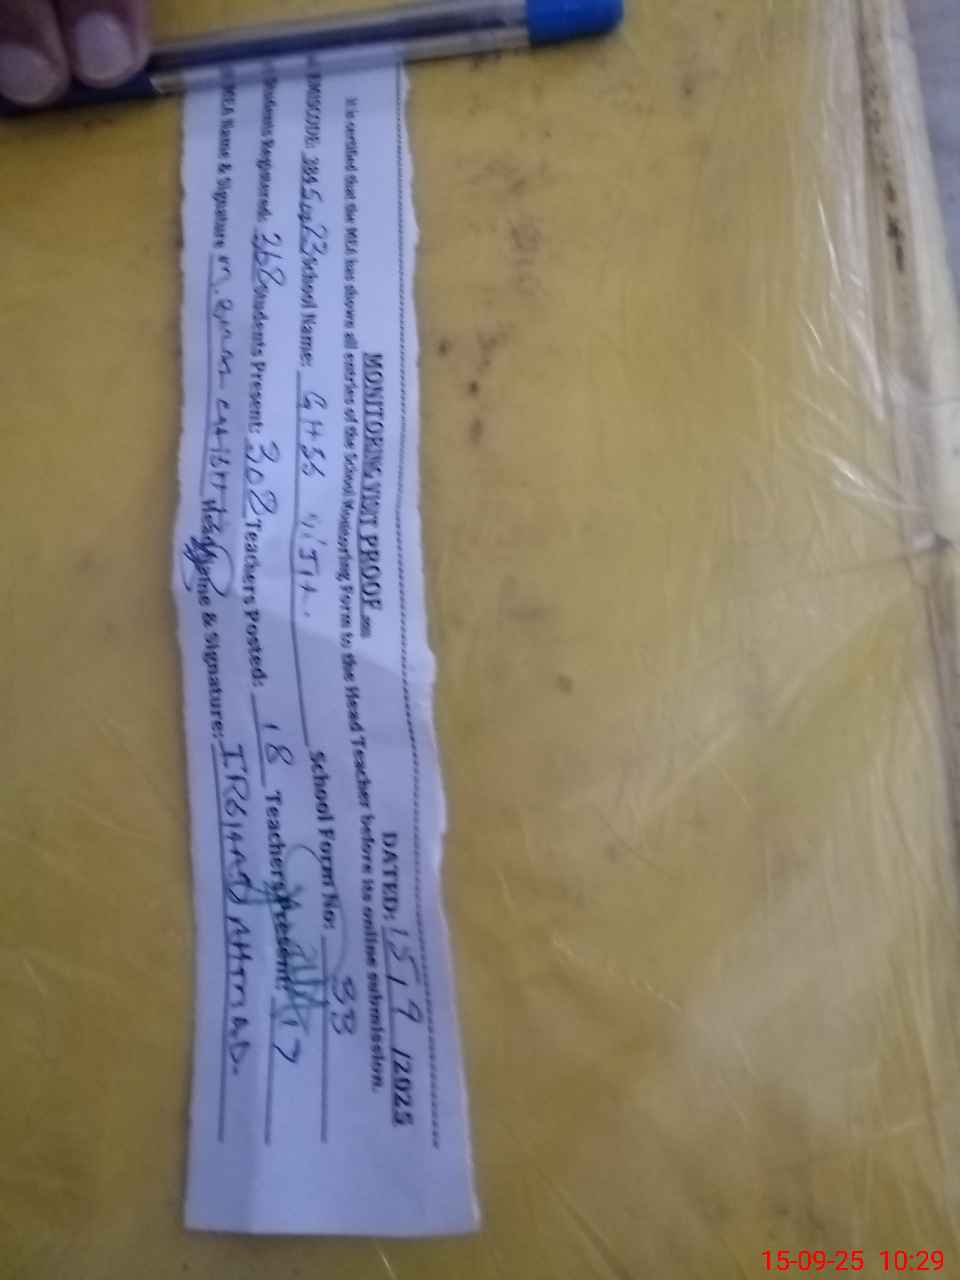 MONITORING VISIT PROOF DATED: 15/9/2025
It is certified that the MEA has shown all entries of the School Monitoring Form to the Head Teacher before its online submission.
EMISCODE: School Name: GHSS School Form No: 33
Students Registered: 368 Students Present: 302 Teachers Posted: 18 Teachers Present: 17
MEA Name & Signature Head Name & Signature: AHMAD.
15-09-25 10:29